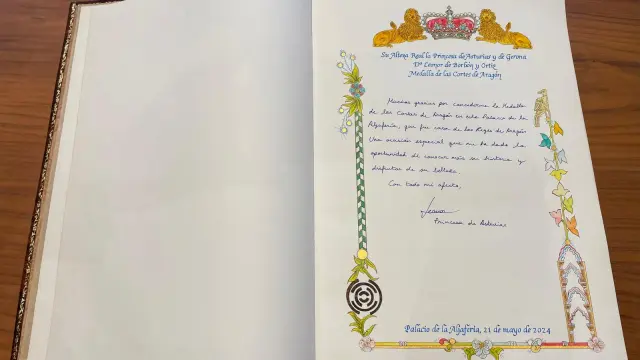 Su Alteza Real la Princesa de Asturias y de Gerona
Dª Leonor de Borbón y Ortiz
Medalla de las Cortes de Aragón
Muchas gracias por concederme la Medalla
de las Cortes de Aragón en este Palacio de la
Aljafería, que fue casa de los Reyes de Aragón
Una ocasión especial que me ha dado la
oportunidad de conocer más su historia y
disfrutar de su belleza
Con todo mi afecto,
Leonor
Princesa de Asturias
Palacio de la Aljafería, 21 de mayo de 2024